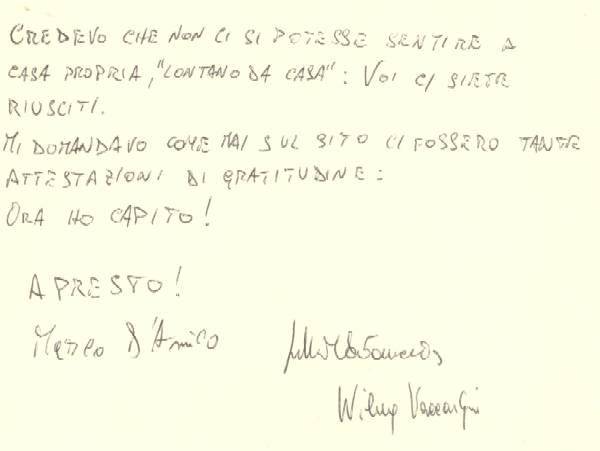 CREDEVO CHE NON CI SI POTESSE SENTIRE A
CASA PROPRIA, "LONTANO DA CASA": VOI CI SIETE
RIUSCITI.
MI DOMANDAVO COME MAI SUL SITO CI FOSSERO TANTE
ATTESTAZIONI DI GRATITUDINE:
ORA HO CAPITO!
A PRESTO!
Matteo D'Amico